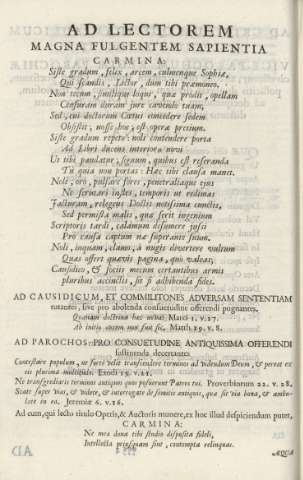 AD LECTOREM
MAGNA FULGENTEM SAPIENTIA
CARMINA:
Siste gradum, felix, arcem, culmenque Sophiæ,
Qui scandis, Lector, dum tibi præmoneo.
Non tecum, similique loquor, quæ prodit, opellam
Censuram liceat jure cavendo tuam,
Sed, cui doctorum Cœtui concedere sedem
Obsistit, nosse hoc, est operæ pretium.
Siste gradum repeto: noli contendere porta
Ad Libri ducens interiora novi
Ut tibi paulatur, signum, quibus est referanda
Tu quia non portas: Hæc tibi clausa manet.
Noli, oro, pulsare fores, penetraliaque ejus
Ne scrutari instes, temporis ut redimas
Jacturam, relegens Doctis notissima cunctis,
Sed permista malis, quæ ferit ingenium
Scriptoris tardi, calamum dismovere jussi
Pro causa captum na superante suum.
Noli, inquam, clamo, à nugis divertere vultum
Quas offert quævis pagina, quò valeas,
Causidice, & sociis mecum certantibus armis
pluribus accinctis, sit si adhibenda fides.
AD CAUSIDICUM, ET COMMILITONES ADVERSAM SENTENTIAM
tutantes, sive pro abolenda consuetudine offerendi pugnantes.
Quænam doctrina hæc nova? Marci 1. v. 27.
Ab initio autem non fuit sic. Matth. 19. v. 8.
AD PAROCHOS PRO CONSUETUDINE ANTIQUISSIMA OFFERENDI
sustinenda decertantes
Contestare populum, ne fortè velit transcendere terminos ad videndum Deum, & pereat ex
eis plurima multitudo. Exodi 19. v. 21.
Ne transgrediaris terminos antiquos quos posuerunt Patres tui. Proverbiorum 22. v. 28.
State super vias, & videte, & interrogate de semitis antiquis, quæ sit via bona, & ambu-
late in ea. Jeremiæ 6. v. 16.
Ad eum, qui lecto titulo Operis, & Auctoris munere, ex hoc illud despiciendum putet,
CARMINA:
Ne mea dona tibi studio disposita fideli,
Intellecta priusquam sint, contempta relinquas.
ÆQUA